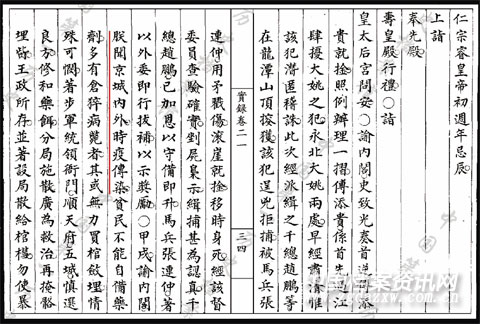 仁宗睿皇帝初週年忌辰
上詣
奉先殿
壽皇殿行禮○詣
皇太后宮問安○諭內閣史致光奏首逆傅添
貴就捦照例辦理一摺傅添貴係首先過江
肆擾大姚之犯永北大姚兩處早經肅清惟
該犯潛匿稽誅此次經派緝之千總趙鵬等
在龍潭山頂搜獲該犯逞兇拒捕被馬兵張
實錄卷二一
三四
連仲用矛戳傷滾崖就捦移時身死經該督
委員查驗確實剉屍梟示緝捕甚為認真千
總趙鵬已加恩以守備即升馬兵張連仲著
以外委即行拔補以示獎勵○甲戌諭內閣
朕聞京城內外時疫傳染貧民不能自備藥
劑多有倉猝病斃者其或無力買棺斂埋情
殊可憫著步軍統領衙門順天府五城慎選
良方修和藥餌分局施散廣為救治再掩骼
埋胔王政所存並著設局散給棺槥勿使暴